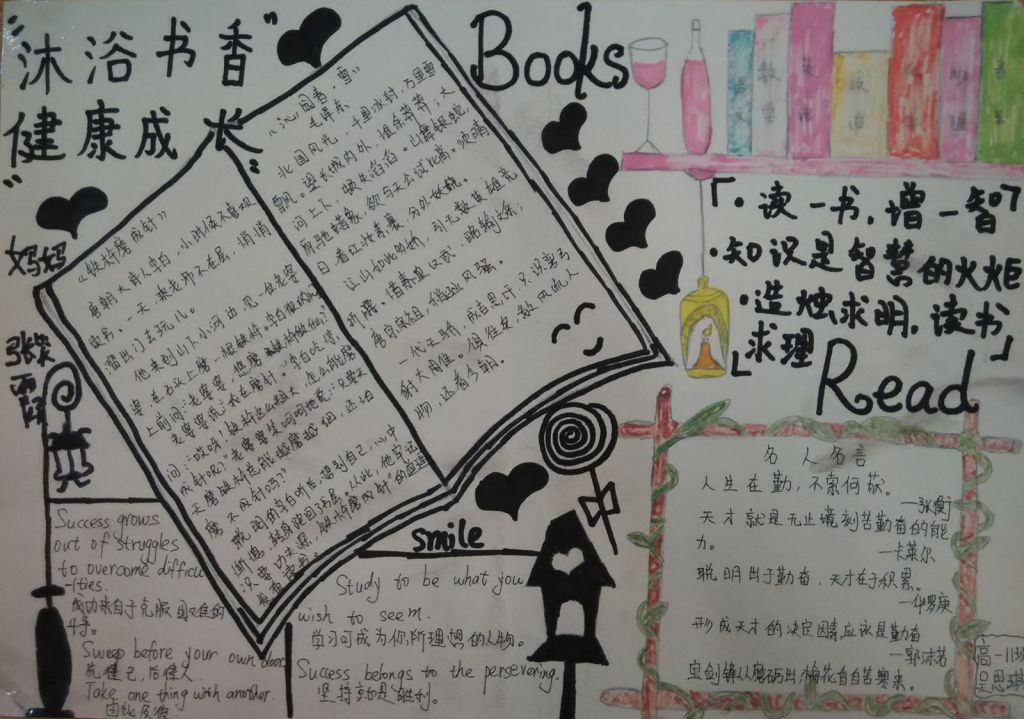 "沐浴书香"
健康成长"
Books
语文
数学
英语
政治
「·读一书，增一智
·知识是智慧的火炬
·造烛求明，读书
求理」
Read
《沁园春，雪》
毛泽东
北国风光，千里冰封，万里雪
飘。望长城内外，惟余莽莽；大
河上下，顿失滔滔。山舞银蛇，
原驰蜡象，欲与天公试比高。须晴
日，看红妆素裹，分外妖娆。
江山如此多娇，引无数英雄竞
折腰。惜秦皇汉武，略输文采；
唐宗宋祖，稍逊风骚。
一代天骄，成吉思汗，只识弯弓
射大雕。俱往矣，数风流人
物，还看今朝。
妈妈
《铁杵磨成针》
唐朝大诗人李白，小时候不喜欢
读书。一天，乘老师不在屋，悄悄
溜出门去玩儿。
他来到山下小河边，见一位老婆
婆，在石头上磨一根铁杵。
老婆婆说："我在磨针。"李白吃惊
问："哎呀！铁杵这么粗大，怎么能磨
成针呢？"老婆婆笑呵呵地说："只要天
天磨铁杵总能越磨越细，还怕
磨不成针吗？"
聪明的李白听后，想到自己，心中
惭愧，转身跑回了书屋。从此，他牢记
"只要功夫深，铁杵磨成针"的道理
发奋读书。
smile
Success grows
out of struggles
to overcome difficu
-lties.
成功来自于克服困难的
斗争。
Sweep before your own door.
先管己，后管人。
Take one thing with another.
由此及彼。
Study to be what you
wish to seem.
学习可成为你所理想的人物。
Success belongs to the persevering.
坚持就是胜利。
名人名言
人生在勤，不索何获。
—张衡
天才就是无止境刻苦勤奋的能
力。
—卡莱尔
聪明出于勤奋，天才在于积累。
—华罗庚
形成天才的决定因素应该是勤奋
—郭沫若
宝剑锋从磨砺出，梅花香自苦寒来。
高一11班
吴思琪